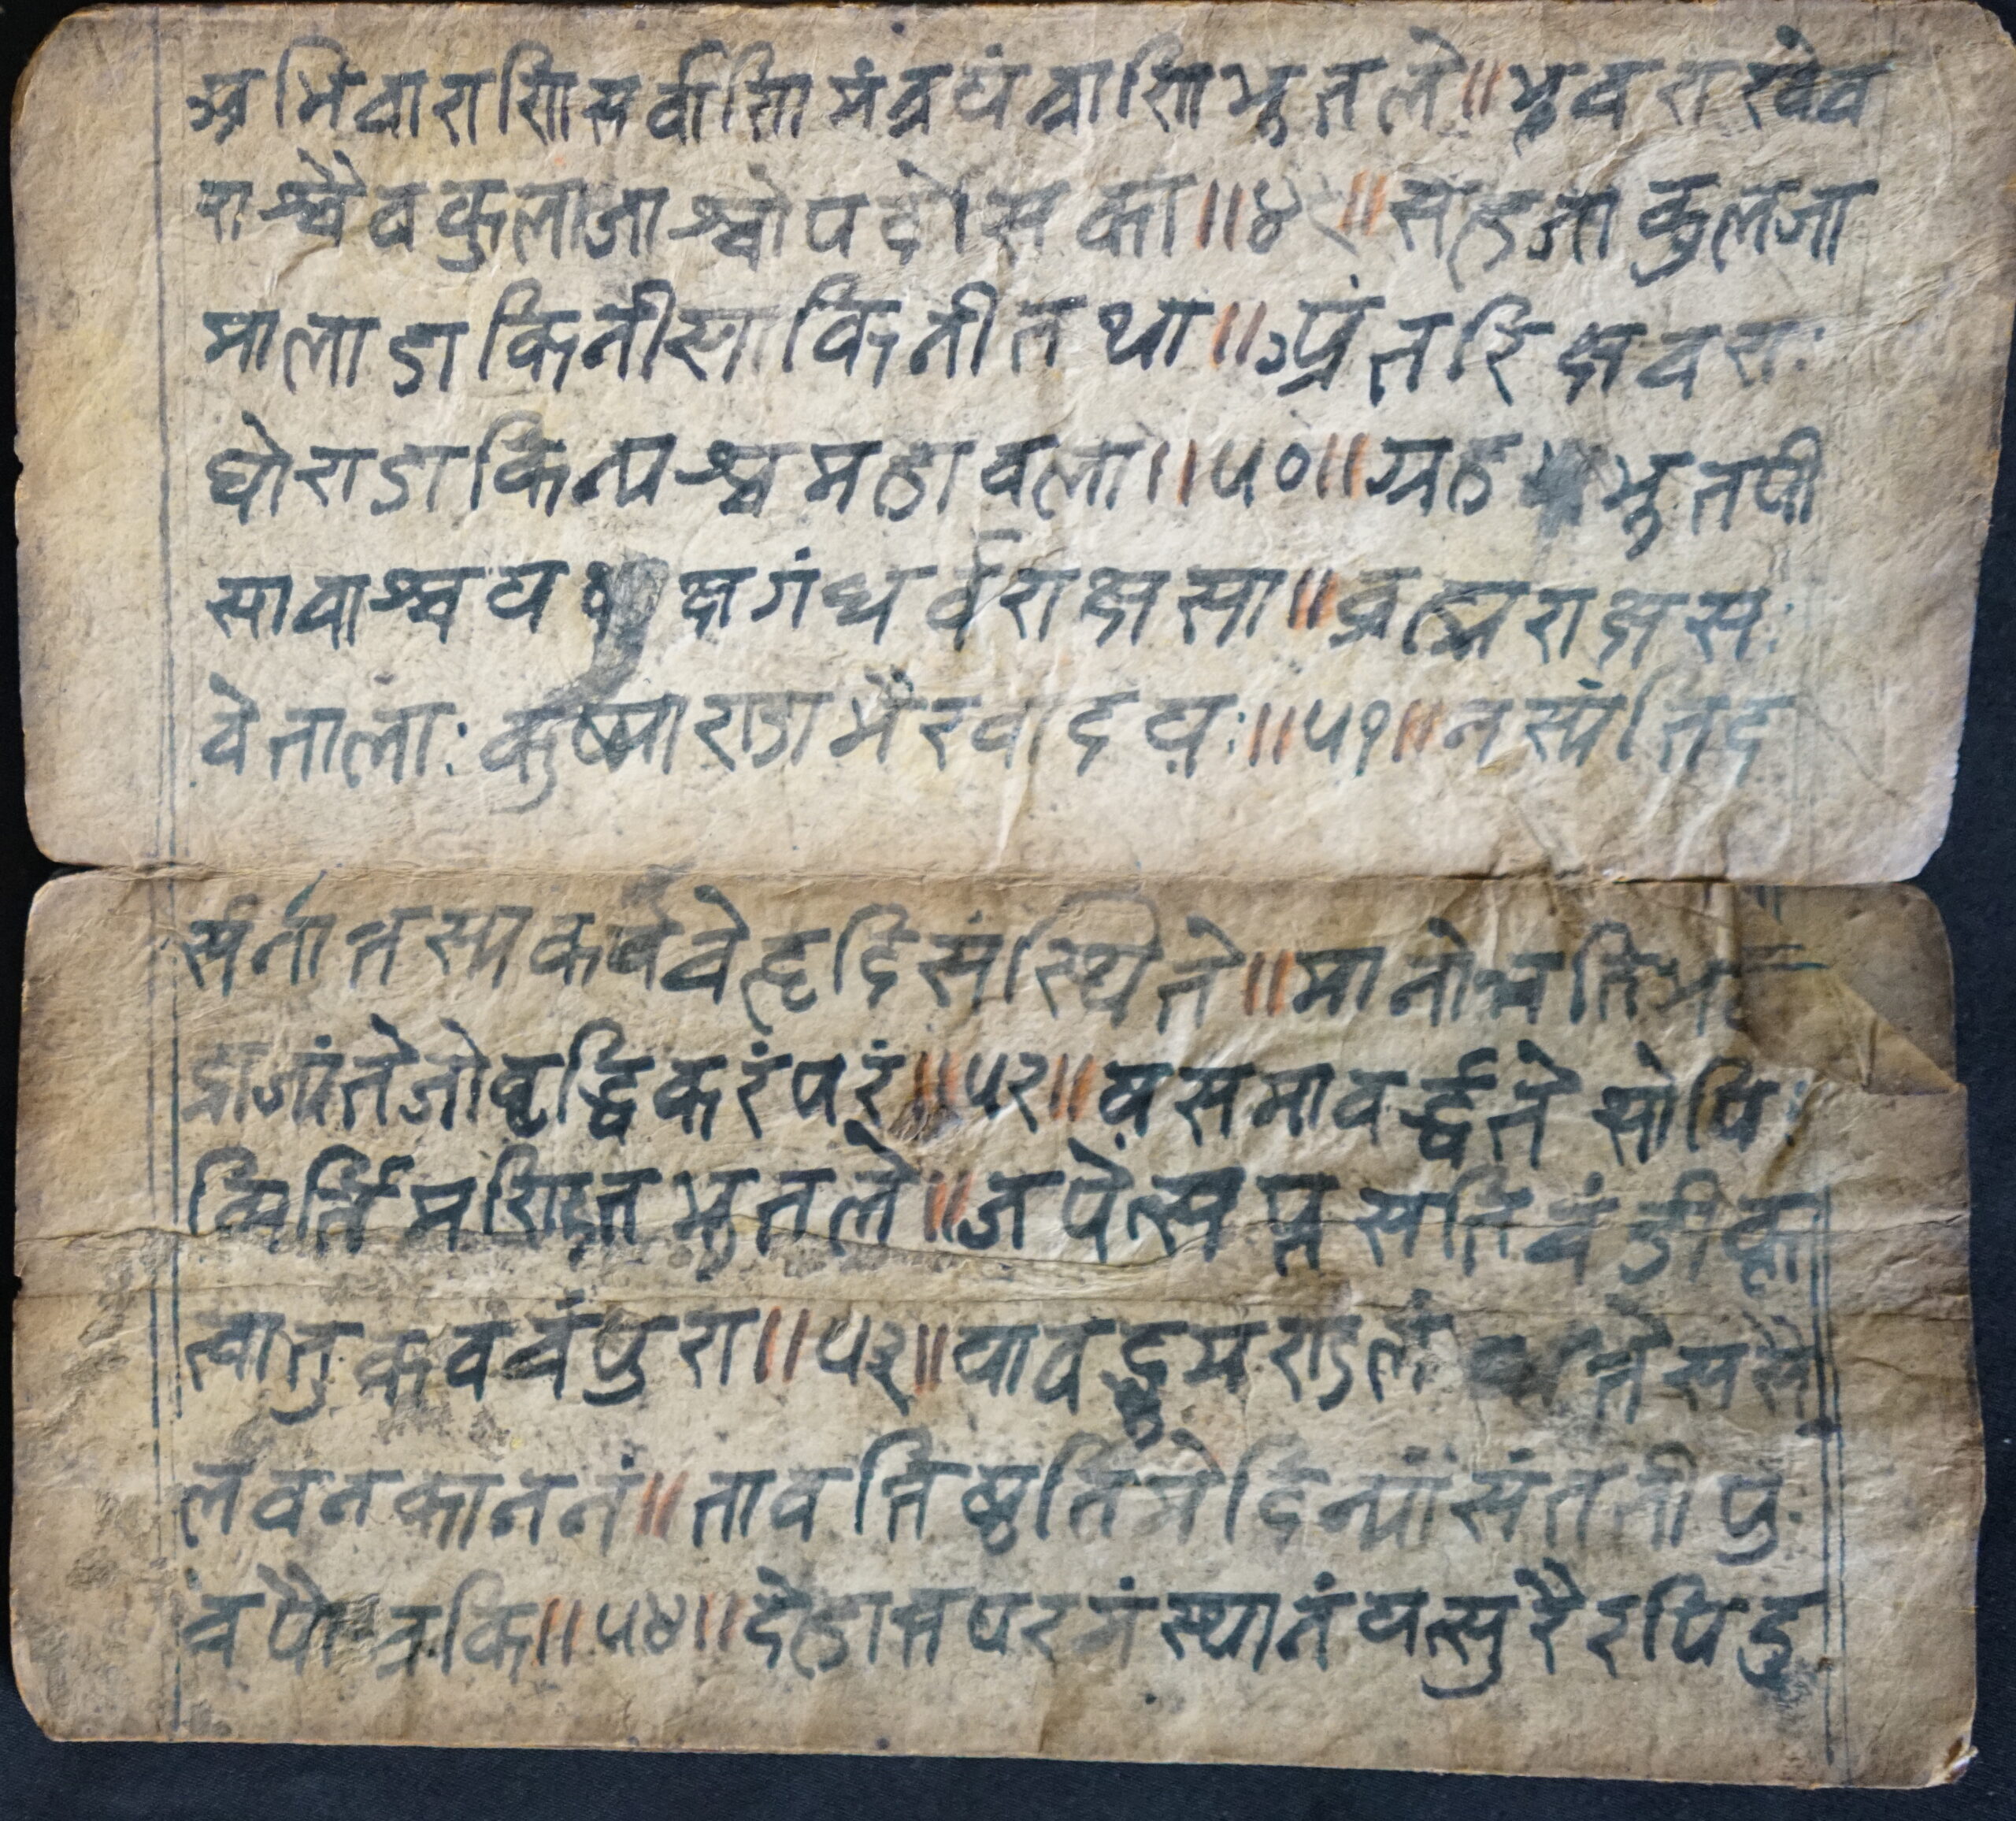 अभिचाराणि सर्वाणि मंत्रयंत्राणि भूतले॥ भूचरा खेच
राश्चैव कुलाजाश्चोपदेशिका॥४९॥ सहजा कुलजा
माला डाकिनी साकिनी तथा॥ अंतरिक्ष चरा:
घोरा डाकिन्यश्च महावला॥५०॥ ग्रह भूत पी
साचाश्च य क्ष गंधर्व राक्षसा॥ व्रह्म राक्षस:
वेताला: कुष्माराडा भैरवादय:॥५१॥ नस्यंति द
र्सनात्तस्य कवचे हृदि संस्थिते॥ मानोन्नति
द्राज्यं तेजो वृद्धि करं परं॥५२॥ यससा वर्द्धते सोपि:
किर्ति मण्डित भूतले॥ जपेत्सप्त सति चंडी कृ
त्वा तु कवचं पुरा॥५३॥ यावद्भूमराडलं त्ते ससै
लवनकाननं॥ तावत्तिष्ठति मेदिन्यां संतती पु
त्र पौत्रकि॥५४॥ देहान्त परमं स्थानं यत्सुरैरपि दु